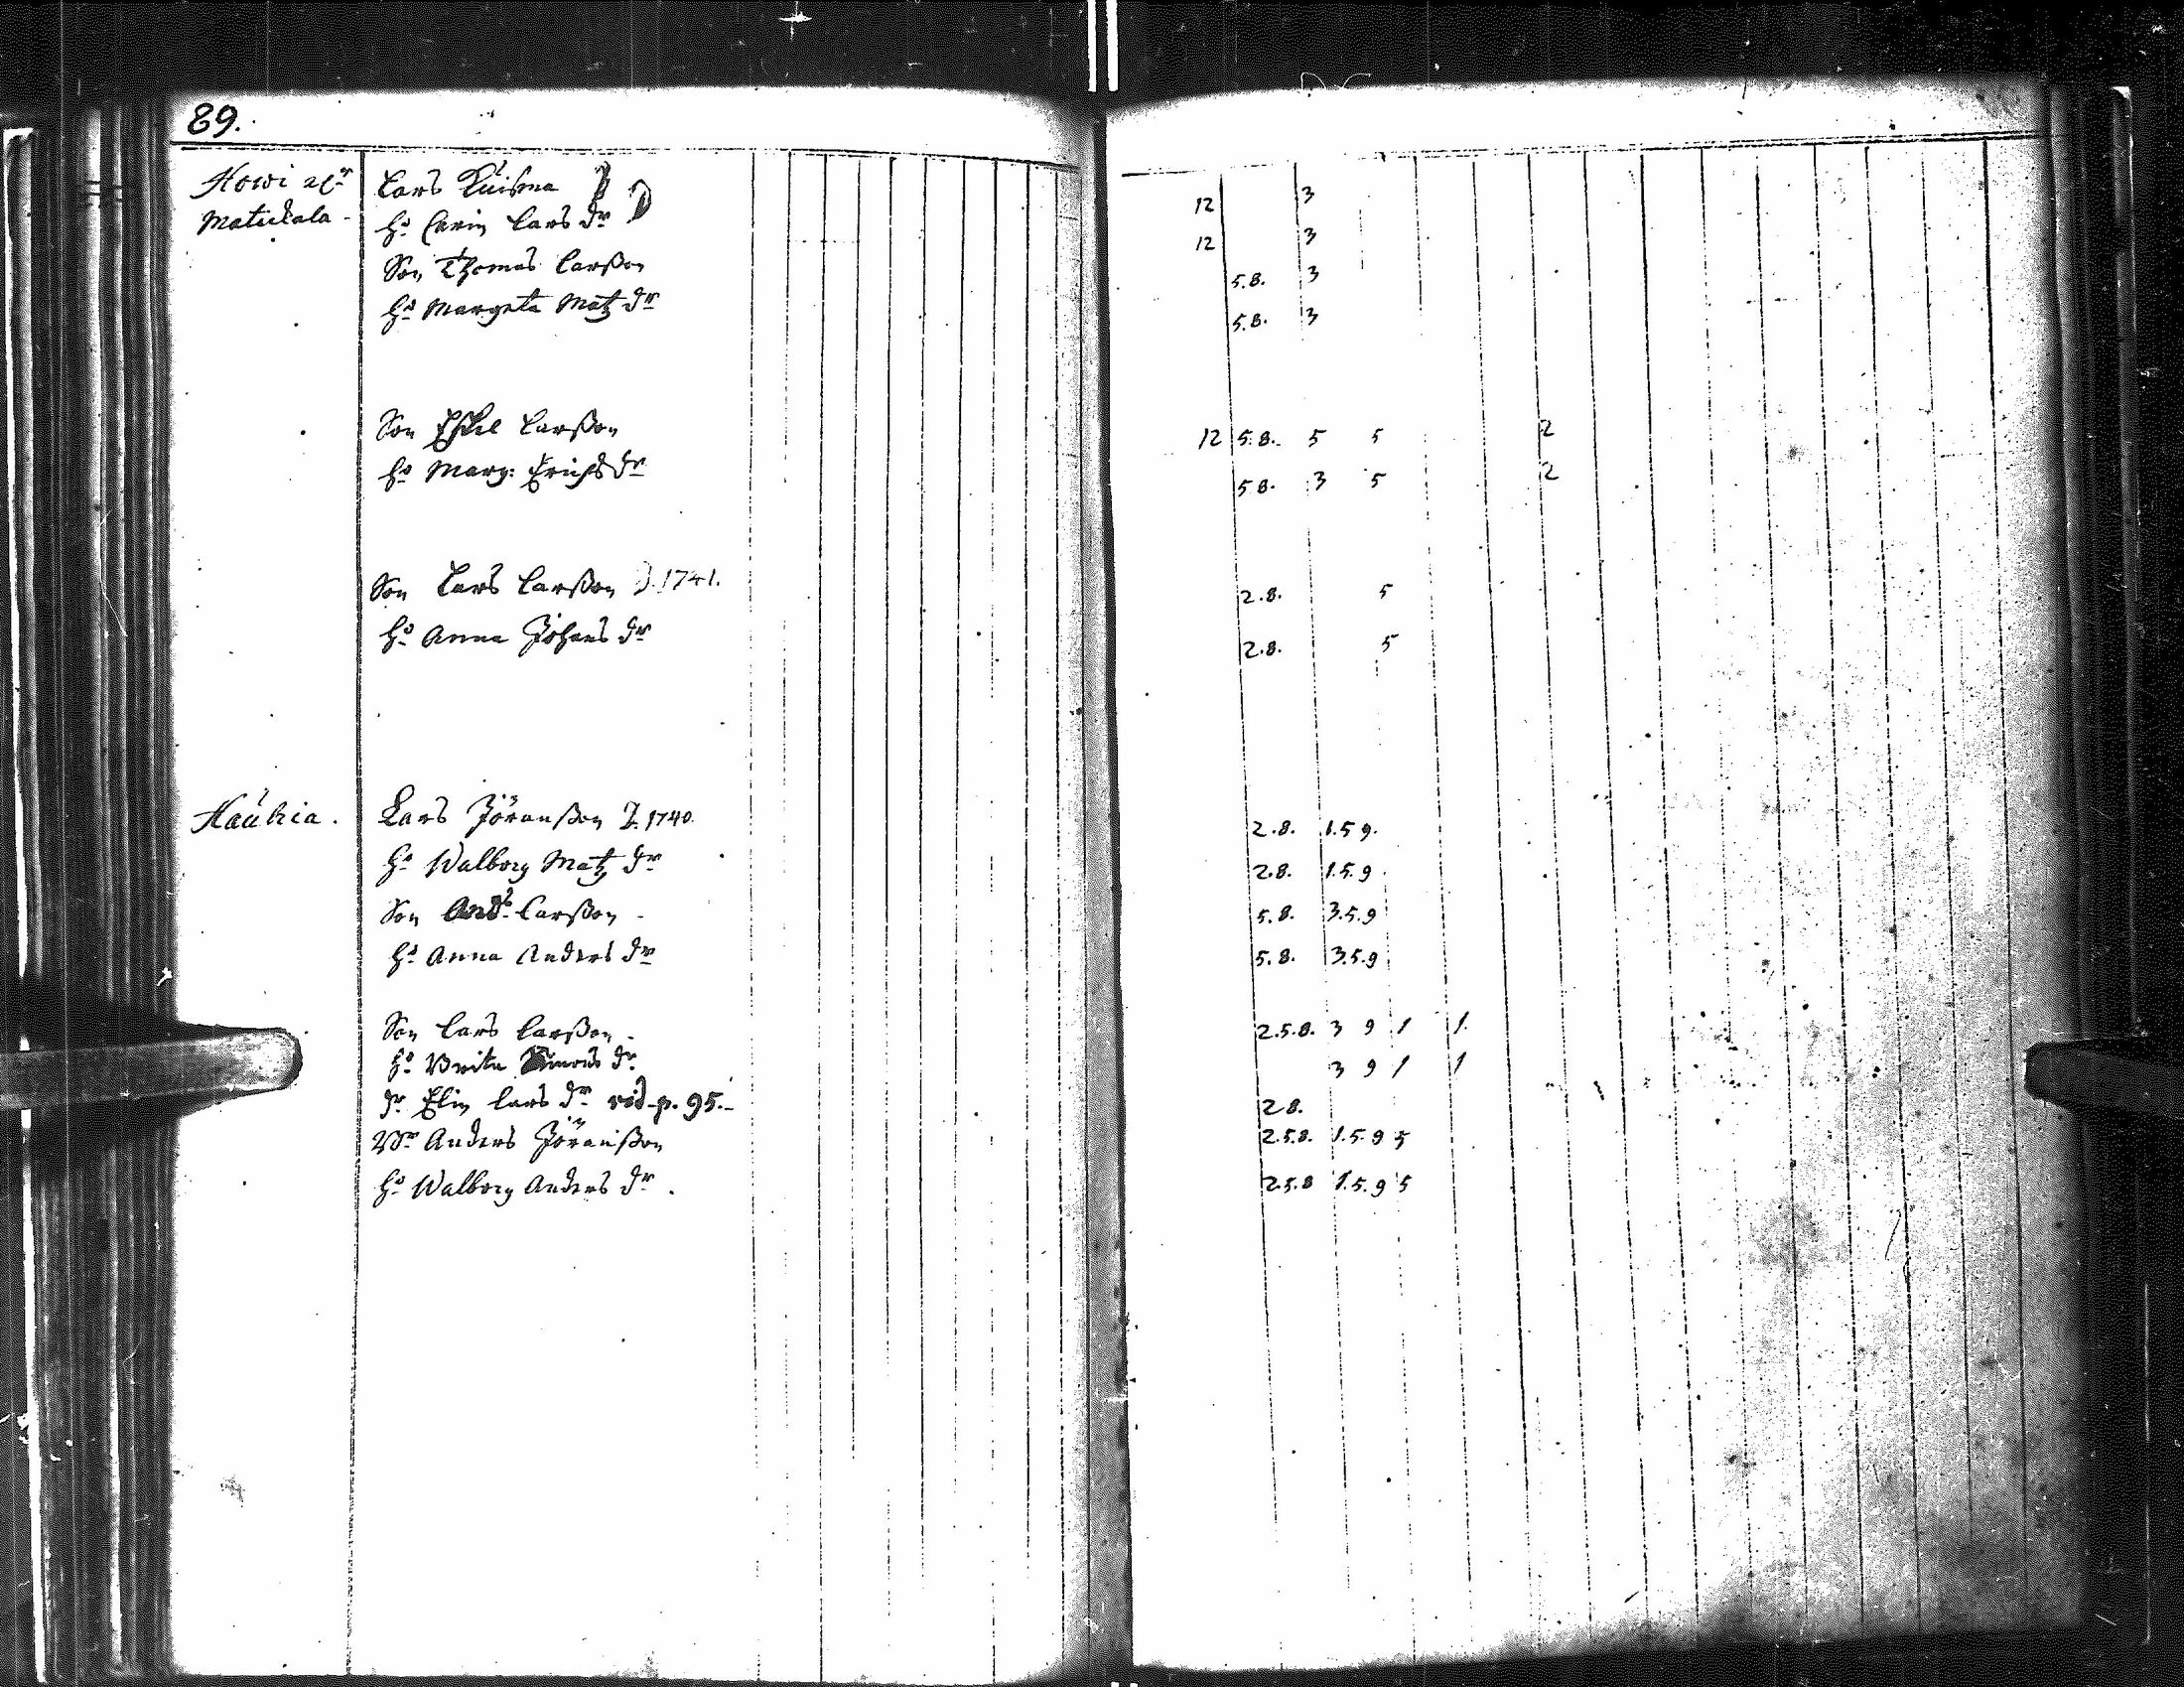 89.
Howi
Matickala -
Lars Kuisma
H:o Carin Lars d:r
Son Thomas Larsson
H:o Margeta Matz d:r
12 3
12 3
5.8. 3
5.8. 3
Son Eskel Larsson
H:o Marg: Erichs d:r
12 5.8. 5 5 2
5.8. 3 5 2
Son Lars Larsson D. 1741.
H:o Anna Johans d:r
2.8. 5
2.8. 5
Haukia.
Lars Jöransson 1740.
H:o Walborg Matz d:r
Son And:s Larsson -
H:o Anna Anders d:r
2.8. 1.5 9.
2.8. 1.5.9.
5.8. 3.5.9
5.8. 3.5.9
Son Lars Larsson -
H:o Brita Simons d:r
d:r Elin Lars d:r vid. p. 95.-
B:r Anders Jöransson
H:o Walborg Anders d:r.
2.5.8. 3 9 1 1.
3 9 1 1
2 8.
2.5.8. 1.5.9 5
2.5.8 1.5.9 5